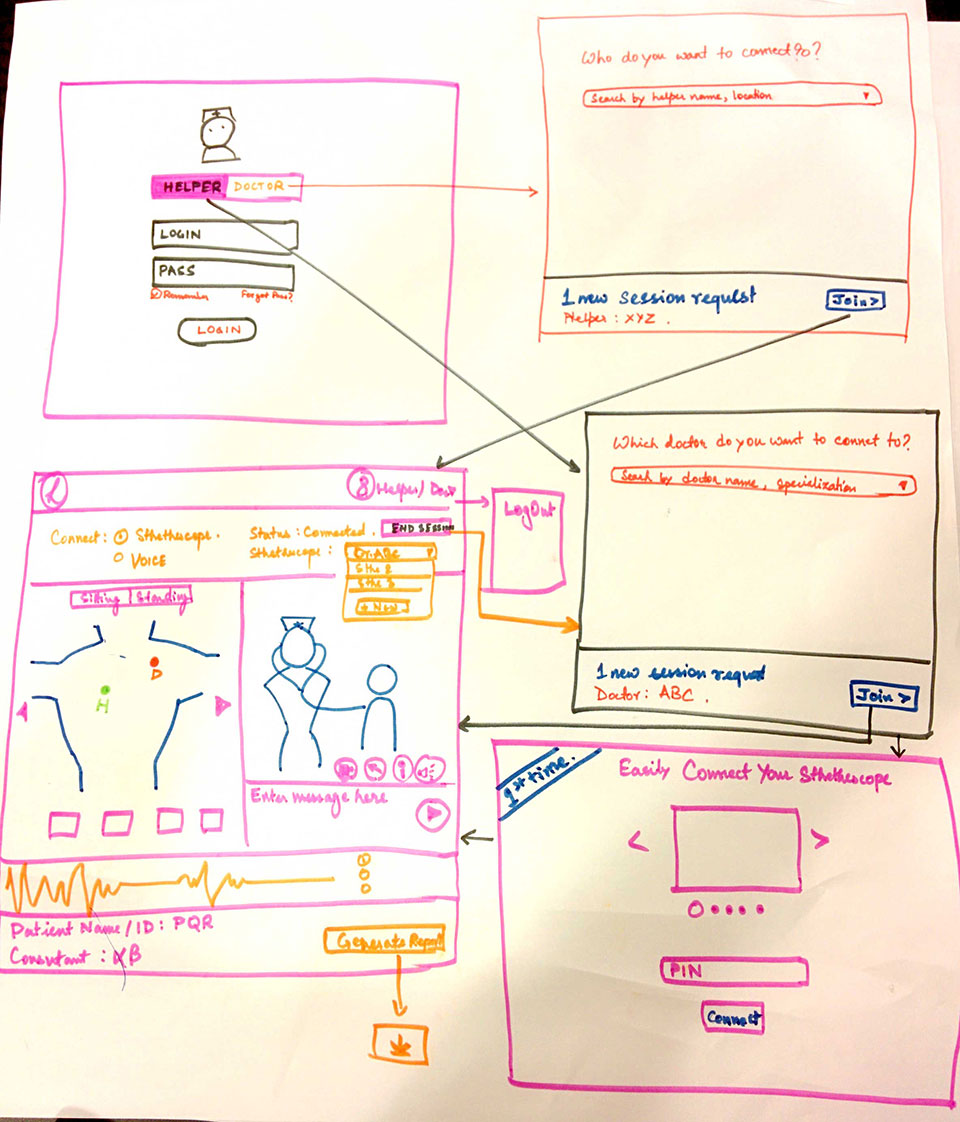 HELPER DOCTOR
LOGIN
PASS
Remember Forgot Pass?
LOGIN
Who do you want to connect to?
Search by helper name, location
1 new session request
Helper : XYZ .
Join >
Which doctor do you want to connet to?
Search by doctor name, specialization
1 new session request
Doctor : ABC .
Join >
Helper/
LogOut
Connect: Sthethescope .
VOICE
Status : Connected .
END SESSION
Sthethescope :
Dr. ABC
Sthe 2
Sthe 3
+ New
Sitting | Standing
D
H
Enter message here
Patient Name/ID : PQR
Generate Report
1st time.
Easily Connect Your Sthethescope
PIN
Connect